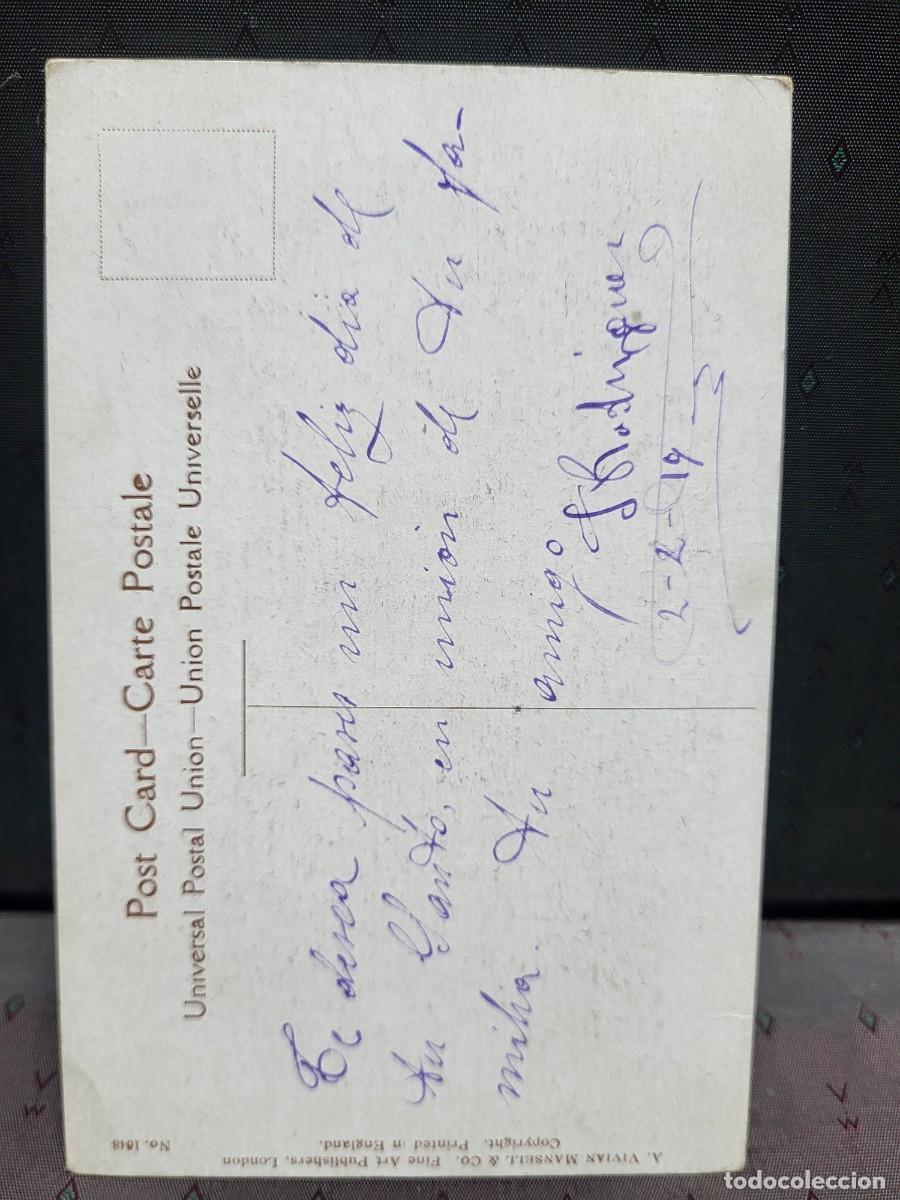 Post Card—Carte Postale
Universal Postal Union—Union Postale Universelle
Te desea pases un feliz dia de
tu Santo, en union de tu fa-
milia. Tu amigo
Rodriguez
2-2-19
A. VIVIAN MANSELL & CO. Fine Art Publishers, London
Copyright. Printed in England.
No. 1648
todocoleccion